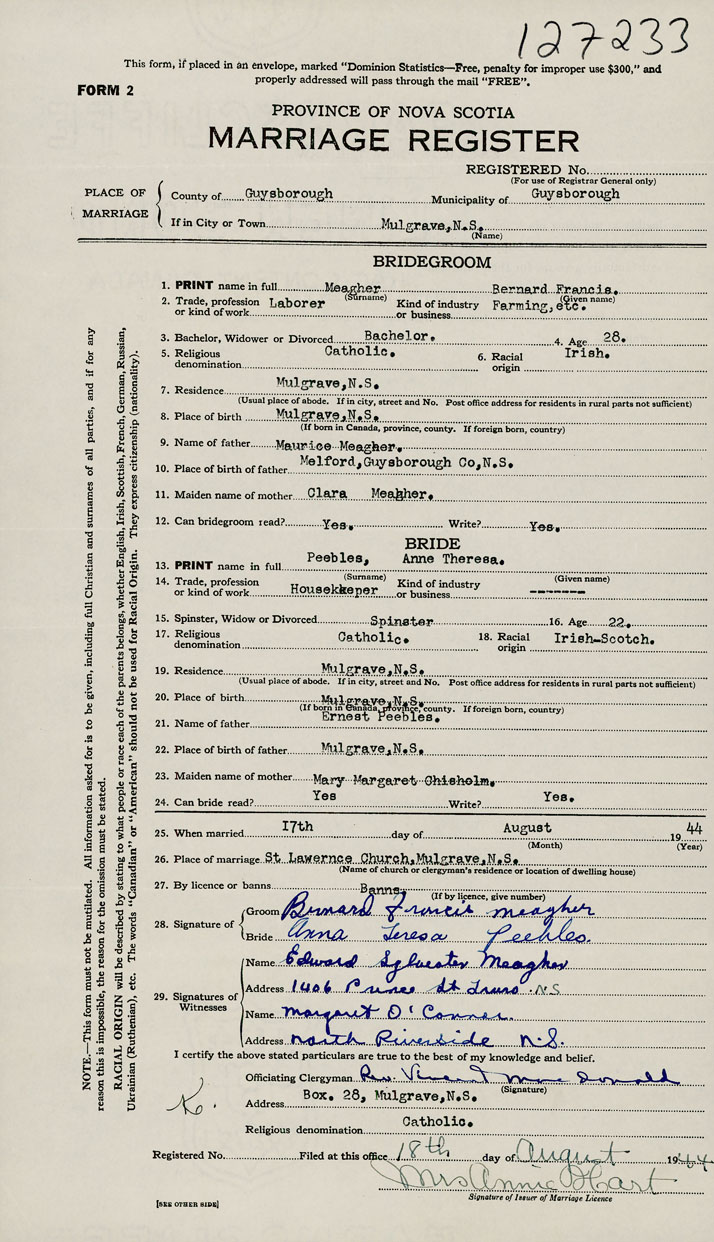 127233
This form, if placed in an envelope, marked "Dominion Statistics—Free, penalty for improper use $300," and
properly addressed will pass through the mail "FREE".
FORM 2
PROVINCE OF NOVA SCOTIA
MARRIAGE REGISTER
REGISTERED No.
(For use of Registrar General only)
PLACE OF MARRIAGE
County of Guysborough Municipality of Guysborough
If in City or Town Mulgrave,N.S.
(Name)
BRIDEGROOM
1. PRINT name in full Meagher Bernard Francis.
(Surname) (Given name)
2. Trade, profession or kind of work Laborer Kind of industry or business Farming,etc.
3. Bachelor, Widower or Divorced Bachelor. 4. Age 28.
5. Religious denomination Catholic. 6. Racial origin Irish.
7. Residence Mulgrave,N.S.
(Usual place of abode. If in city, street and No. Post office address for residents in rural parts not sufficient)
8. Place of birth Mulgrave,N.S.
(If born in Canada, province, county. If foreign born, country)
9. Name of father Maurice Meagher.
10. Place of birth of father Melford,Guysborough Co,N.S.
11. Maiden name of mother Clara Meagher.
12. Can bridegroom read? Yes. Write? Yes.
BRIDE
13. PRINT name in full Peebles, Anne Theresa.
(Surname) (Given name)
14. Trade, profession or kind of work Housekkeper Kind of industry or business -------
15. Spinster, Widow or Divorced Spinster 16. Age 22.
17. Religious denomination Catholic. 18. Racial origin Irish-Scotch.
19. Residence Mulgrave,N.S.
(Usual place of abode. If in city, street and No. Post office address for residents in rural parts not sufficient)
20. Place of birth Mulgrave,N.S.
(If born in Canada, province, county. If foreign born, country)
21. Name of father Ernest Peebles.
22. Place of birth of father Mulgrave,N.S.
23. Maiden name of mother Mary Margaret Chisholm.
24. Can bride read? Yes Write? Yes.
25. When married I7th day of August 1944
(Month) (Year)
26. Place of marriage St Lawernce Church,Mulgrave,N.S.
(Name of church or clergyman's residence or location of dwelling house)
27. By licence or banns Banns.
(If by licence, give number)
28. Signature of
Groom Bernard Francis Meagher
Bride Anna Teresa Peebles.
29. Signatures of Witnesses
Name Edward Sylvester Meagher
Address 1406 Prince St Truro N.S
Name Margaret O'Conner.
Address North Riverside N.S.
I certify the above stated particulars are true to the best of my knowledge and belief.
Officiating Clergyman Rev. Vincent MacDonald
(Signature)
K.
Address Box. 28, Mulgrave,N.S.
Religious denomination Catholic.
Registered No. Filed at this office 18th day of August 1944
Mrs Annie Hart
Signature of Issuer of Marriage Licence
[SEE OTHER SIDE]
NOTE.—This form must not be mutilated. All information asked for is to be given, including full Christian and surnames of all parties, and if for any
reason this is impossible, the reason for the omission must be stated.
RACIAL ORIGIN will be described by stating to what people or race each of the parents belongs, whether English, Irish, Scottish, French, German, Russian,
Ukrainian (Ruthenian), etc. The words "Canadian" or "American" should not be used for Racial Origin. They express citizenship (nationality).